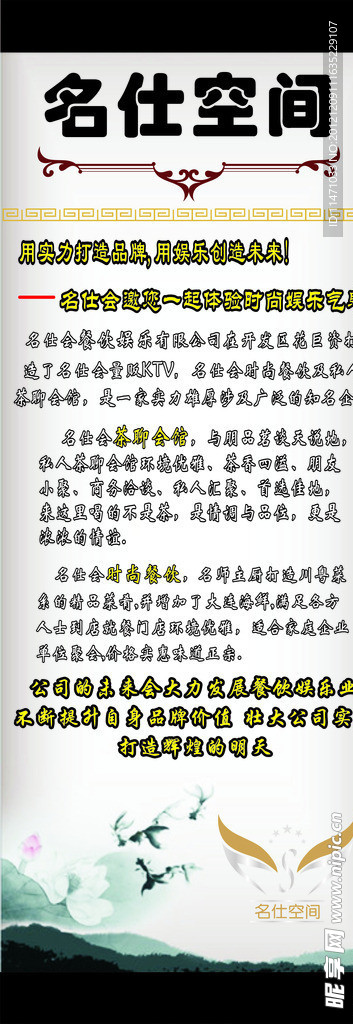 名仕空间
用实力打造品牌,用娱乐创造未来!
——名仕会邀您一起体验时尚娱乐气
名仕会餐饮娱乐有限公司在开发区花巨资
造了名仕会量贩KTV，名仕会时尚餐饮及私人
茶聊会馆，是一家实力雄厚涉及广泛的知名企
名仕会茶聊会馆，与朋品茗谈天说地，
私人茶聊会馆环境优雅、茶香四溢、朋友
小聚、商务洽谈、私人汇聚、首选佳地，
来这里喝的不是茶，是情调与品位，更是
浓浓的情谊.
名仕会时尚餐饮，名师主厨打造川粤菜
系的精品菜肴,并增加了大连海鲜,满足各方
人士到店就餐门店环境优雅，适合家庭企业
单位聚会,价格实惠味道正宗.
公司的未来会大力发展餐饮娱乐业
不断提升自身品牌价值 壮大公司实
打造辉煌的明天
名仕空间
昵享网 www.nipic.cn
NO:20121209111635229107